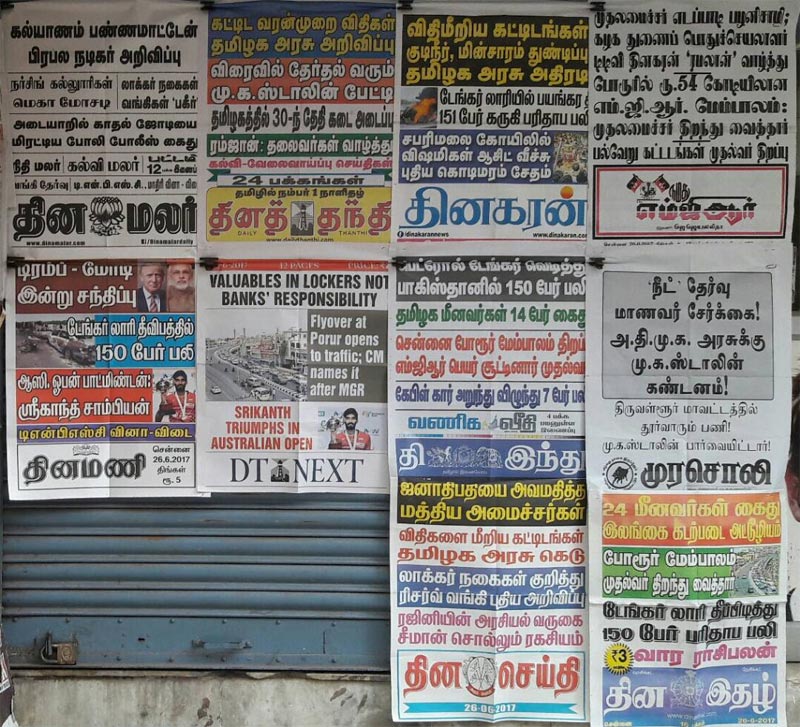 கல்யாணம் பண்ணமாட்டேன்
பிரபல நடிகர் அறிவிப்பு
நர்சிங் கல்லூரிகள்
மெகா மோசடி
லாக்கர் நகைகள்
வங்கிகள் 'பகீர்'
அடையாறில் காதல் ஜோடியை
மிரட்டிய போலி போலீஸ் கைது
நீதி மலர்
கல்வி மலர்
தின மலர்
www.dinamalar.com
/Dinamalardaily
கட்டிட வரன்முறை விதிகள்
தமிழக அரசு அறிவிப்பு
விரைவில் தேர்தல் வரும்
மு.க.ஸ்டாலின் பேட்டி
தமிழகத்தில் 30-ந் தேதி கடை அடைப்பு
ரம்ஜான்: தலைவர்கள் வாழ்த்து
கல்வி-வேலைவாய்ப்பு செய்திகள்
24 பக்கங்கள்
தமிழில் நம்பர் 1 நாளிதழ்
தினத் தந்தி
DAILY THANTHI
www.dailythanthi.com
விதிமீறிய கட்டிடங்கள்
குடிநீர், மின்சாரம் துண்டிப்பு
தமிழக அரசு அதிரடி
டேங்கர் லாரியில் பயங்கர தீ
151 பேர் கருகி பரிதாப பலி
சபரிமலை கோயிலில்
விஷமிகள் ஆசிட் வீச்சு
புதிய கொடிமரம் சேதம்
தினகரன்
/dinakarannews
www.dinakaran.com
முதலமைச்சர் எடப்பாடி பழனிசாமி;
கழக துணைப் பொதுச்செயலாளர்
டிடிவி தினகரன் 'ரமலான்' வாழ்த்து
போரூரில் ரூ.54 கோடியிலான
எம்.ஜி.ஆர். மேம்பாலம்:
முதலமைச்சர் திறந்து வைத்தார்
பல்வேறு கட்டடங்கள் முதல்வர் திறப்பு
நமது
எம்ஜிஆர்
டிரம்ப் - மோடி
இன்று சந்திப்பு
டேங்கர் லாரி தீவிபத்தில்
150 பேர் பலி
ஆஸி. ஓபன் பாட்மிண்டன்:
ஸ்ரீகாந்த் சாம்பியன்
டிஎன்பிஎஸ்சி வினா-விடை
தினமணி
சென்னை
26.6.2017
திங்கள்
ரூ. 5
6-2017 12 PAGES PRICE
VALUABLES IN LOCKERS NOT
BANKS' RESPONSIBILITY
Flyover at
Porur opens
to traffic; CM
names it
after MGR
SRIKANTH
TRIUMPHS IN
AUSTRALIAN OPEN
DT NEXT
பெட்ரோல் டேங்கர் வெடித்து
பாகிஸ்தானில் 150 பேர் பலி
தமிழக மீனவர்கள் 14 பேர் கைது
சென்னை போரூர் மேம்பாலம் திறப்பு
எம்ஜிஆர் பெயர் சூட்டினார் முதல்வர்
கேபிள் கார் அறுந்து விழுந்து 7 பேர் பலி
வணிக வீதி
4 பக்க
தி இந்து
'நீட்' தேர்வு
மாணவர் சேர்க்கை!
அ.தி.மு.க. அரசுக்கு
மு.க.ஸ்டாலின்
கண்டனம்!
திருவள்ளூர் மாவட்டத்தில்
தூர்வாரும் பணி!
மு.க.ஸ்டாலின் பார்வையிட்டார்!
முரசொலி
ஜனாதிபதியை அவமதித்த
மத்திய அமைச்சர்கள்
விதிகளை மீறிய கட்டிடங்கள்
தமிழக அரசு கெடு
லாக்கர் நகைகள் குறித்து
ரிசர்வ் வங்கி புதிய அறிவிப்பு
ரஜினியின் அரசியல் வருகை
சீமான் சொல்லும் ரகசியம்
தின செய்தி
26-06-2017
24 மீனவர்கள் கைது
இலங்கை கடற்படை அட்டூழியம்
போரூர் மேம்பாலம்
முதல்வர் திறந்து வைத்தார்
டேங்கர் லாரி தீப்பிடித்து
150 பேர் பரிதாப பலி
₹3
வார ராசிபலன்
தின இதழ்
26-6-2017